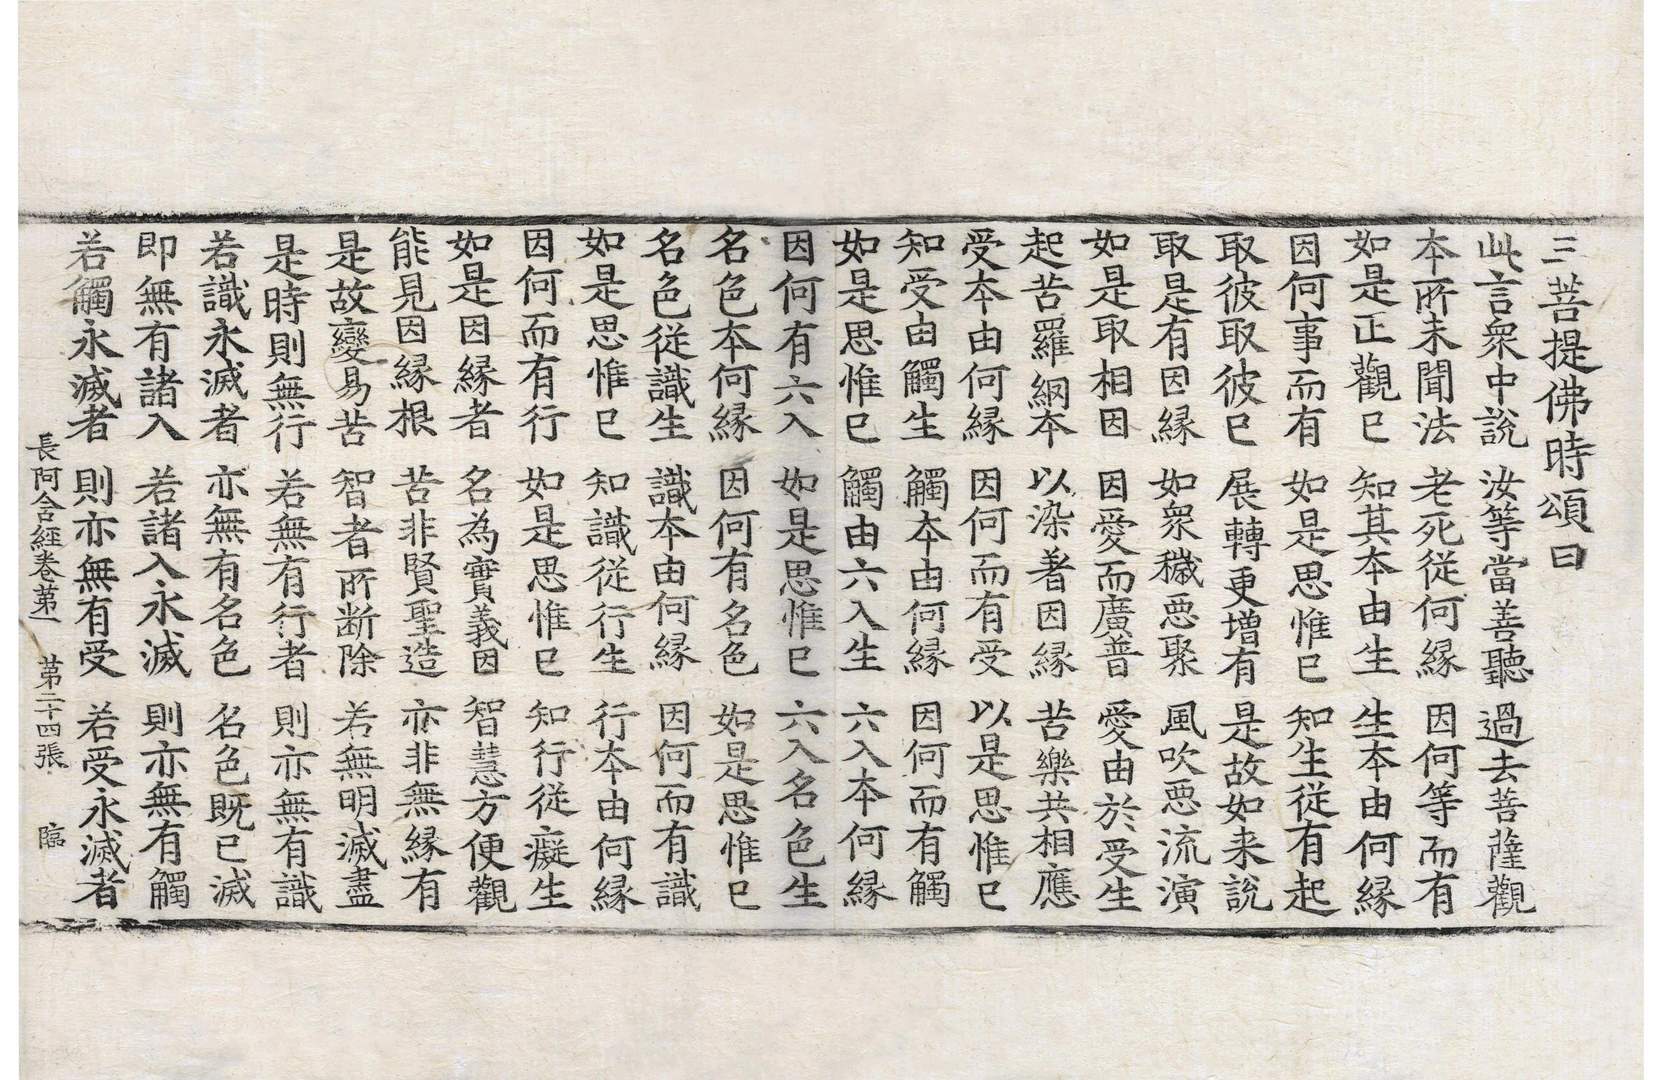 三菩提佛時頌曰
此言衆中說 汝等當善聽 過去菩薩觀
本所未聞法 老死從何緣 因何等而有
如是正觀已 知其本由生 生本由何緣
因何事而有 如是思惟已 知生從有起
取彼取彼已 展轉更增有 是故如来說
取是有因緣 如衆穢惡聚 風吹惡流演
如是取相因 因愛而廣普 愛由於受生
起苦羅網本 以染著因緣 苦樂共相應
受本由何緣 因何而有受 以是思惟已
知受由觸生 觸本由何緣 因何而有觸
如是思惟已 觸由六入生 六入本何緣
因何有六入 如是思惟已 六入名色生
名色本何緣 因何有名色 如是思惟已
名色從識生 識本由何緣 因何而有識
如是思惟已 知識從行生 行本由何緣
因何而有行 如是思惟已 知行從癡生
如是因緣者 名為實義因 智慧方便觀
能見因緣根 苦非賢聖造 亦非無緣有
是故變易苦 智者所断除 若無明滅盡
是時則無行 若無有行者 則亦無有識
若識永滅者 亦無有名色 名色既已滅
即無有諸入 若諸入永滅 則亦無有觸
若觸永滅者 則亦無有受 若受永滅者
長阿含經卷第一 第二十四張 臨